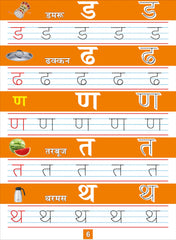 डमरू ड ड
ड ड ड ड ड ड
ढक्कन ढ ढ
ढ ढ ढ ढ ढ ढ
ण ण ण
ण ण ण ण ण ण
तरबूज त त
त त त त त त
थरमस थ थ
थ थ थ थ थ थ
6